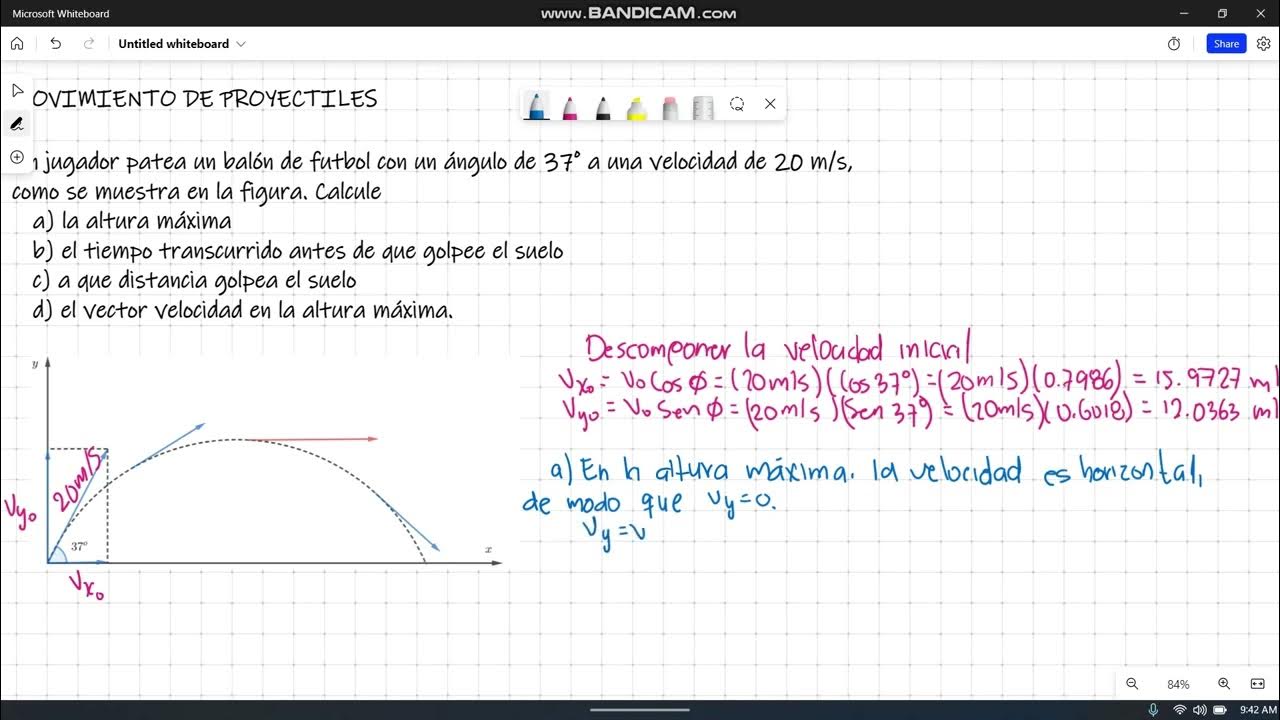 Microsoft Whiteboard
www.BANDICAM.com
Untitled whiteboard
Share
OVIMIENTO DE PROYECTILES
n jugador patea un balón de futbol con un ángulo de 37° a una velocidad de 20 m/s,
como se muestra en la figura. Calcule
a) la altura máxima
b) el tiempo transcurrido antes de que golpee el suelo
c) a que distancia golpea el suelo
d) el vector velocidad en la altura máxima.
Descomponer la velocidad inicial
Vx₀ = V₀ Cos Φ = (20m/s)(Cos 37°) = (20m/s)(0.7986) = 15.9727 m/
Vy₀ = V₀ Sen Φ = (20m/s)(Sen 37°) = (20m/s)(0.6018) = 12.0363 m/
a) En h altura máxima. la velocidad es horizontal,
de modo que Vy=0.
Vy = v
y
20m/s
Vy₀
37°
x
Vx₀
84%
9:42 AM